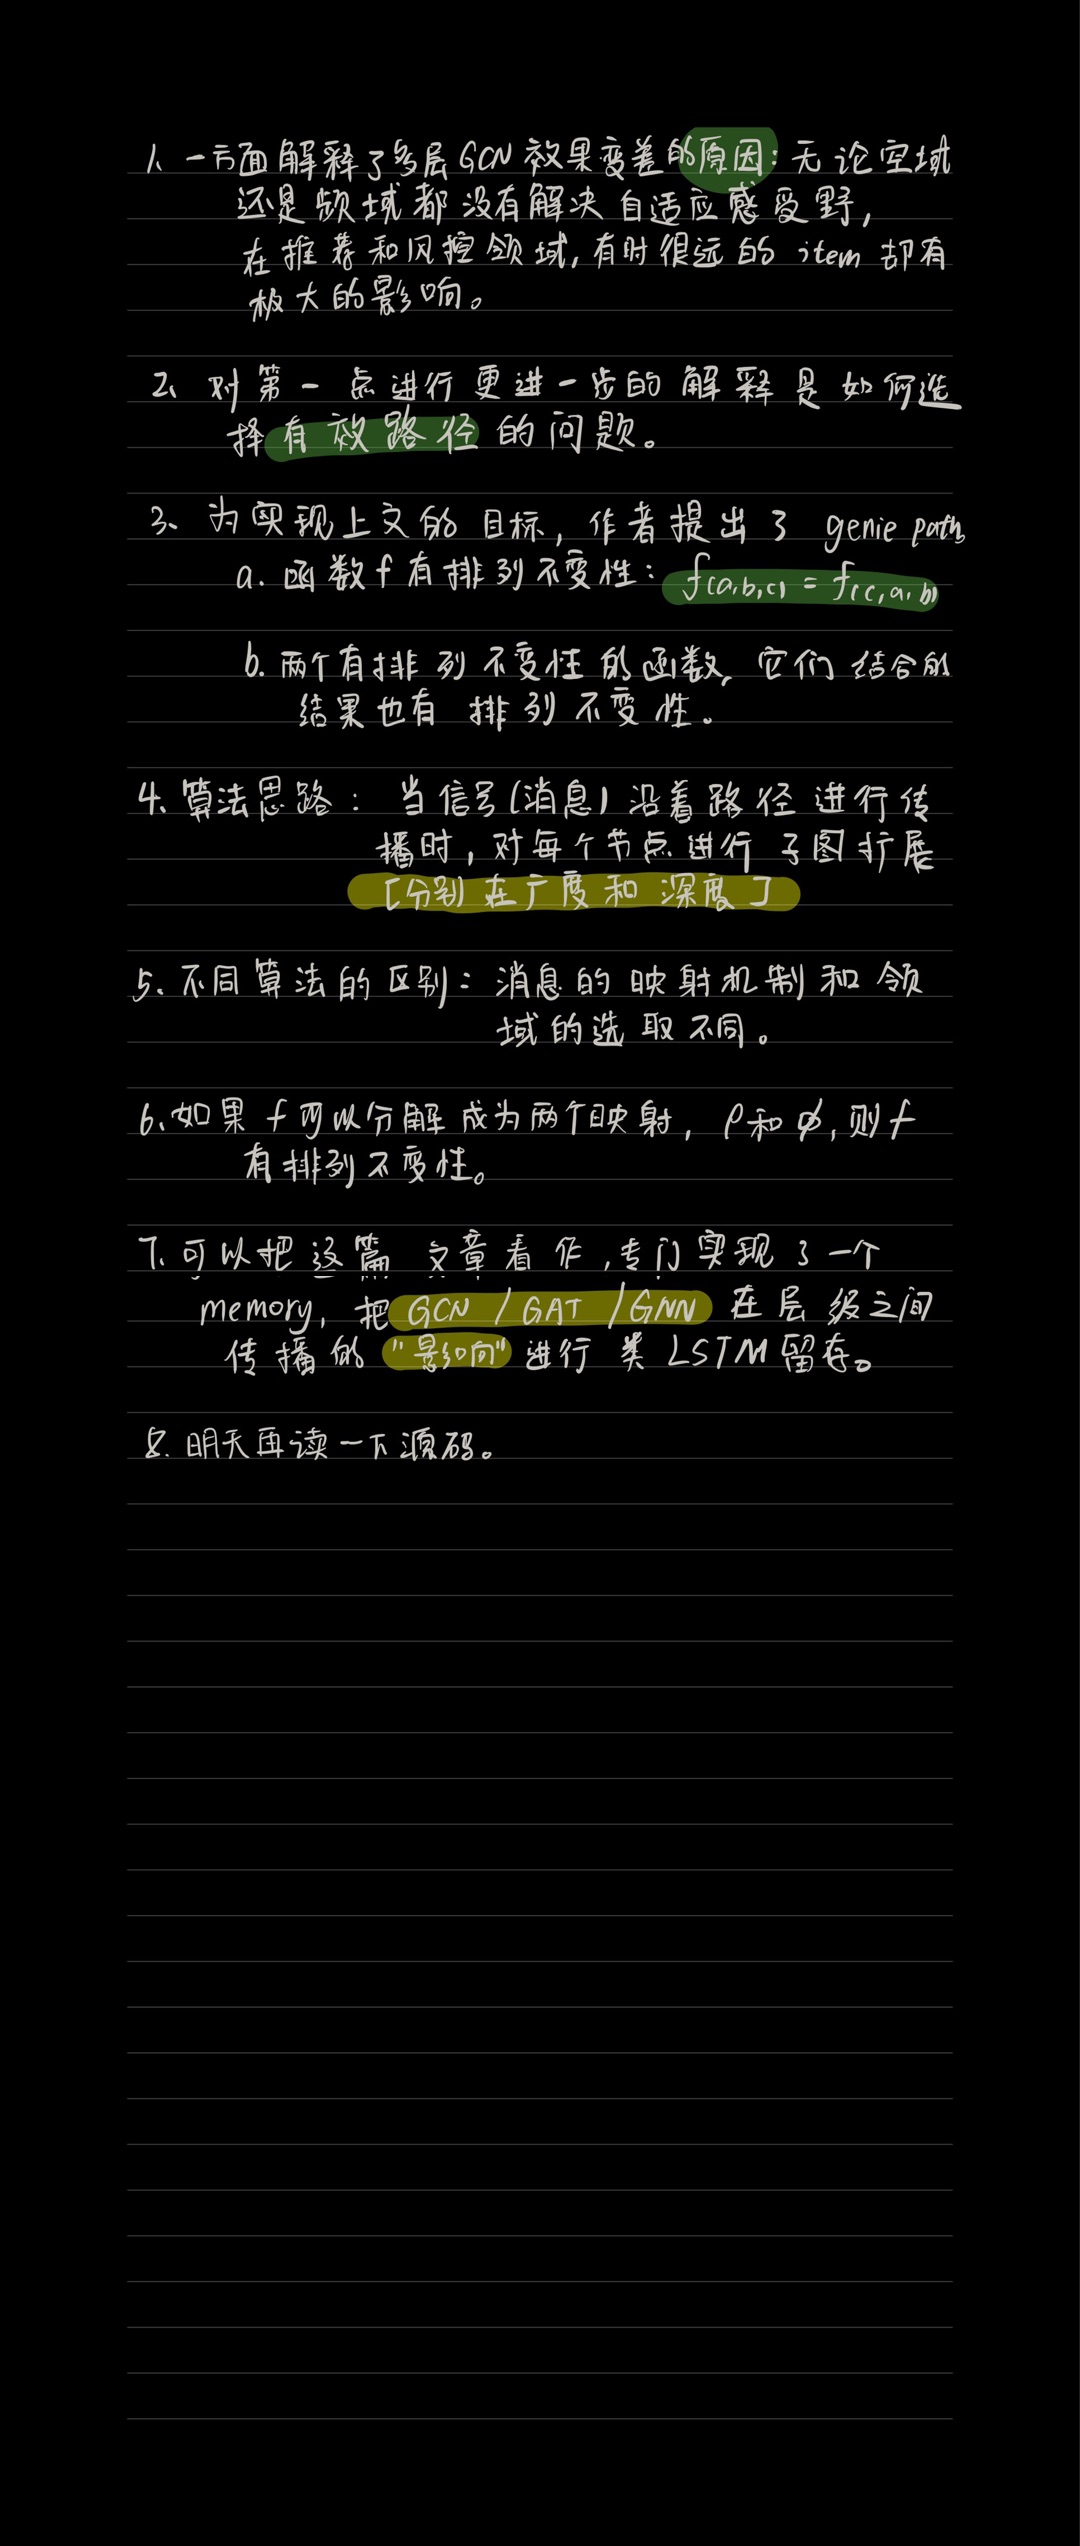 1、一方面解释了多层GCN效果变差的原因：无论空域
还是频域都没有解决自适应感受野，
在推荐和风控领域，有时很远的item却有
极大的影响。
2、对第一点进行更进一步的解释是如何选
择有效路径的问题。
3、为实现上文的目标，作者提出了genie path
a. 函数f有排列不变性：f(a,b,c) = f(c,a,b)
b. 两个有排列不变性的函数，它们结合的
结果也有排列不变性。
4. 算法思路：当信号(消息)沿着路径进行传
播时，对每个节点进行子图扩展
[分别在广度和深度]
5、不同算法的区别：消息的映射机制和领
域的选取不同。
6、如果f可以分解成为两个映射，ρ和φ，则f
有排列不变性。
7. 可以把这篇文章看作，专门实现了一个
memory，把GCN/GAT/GNN在层级之间
传播的"影响"进行类LSTM留存。
8. 明天再读一下源码。